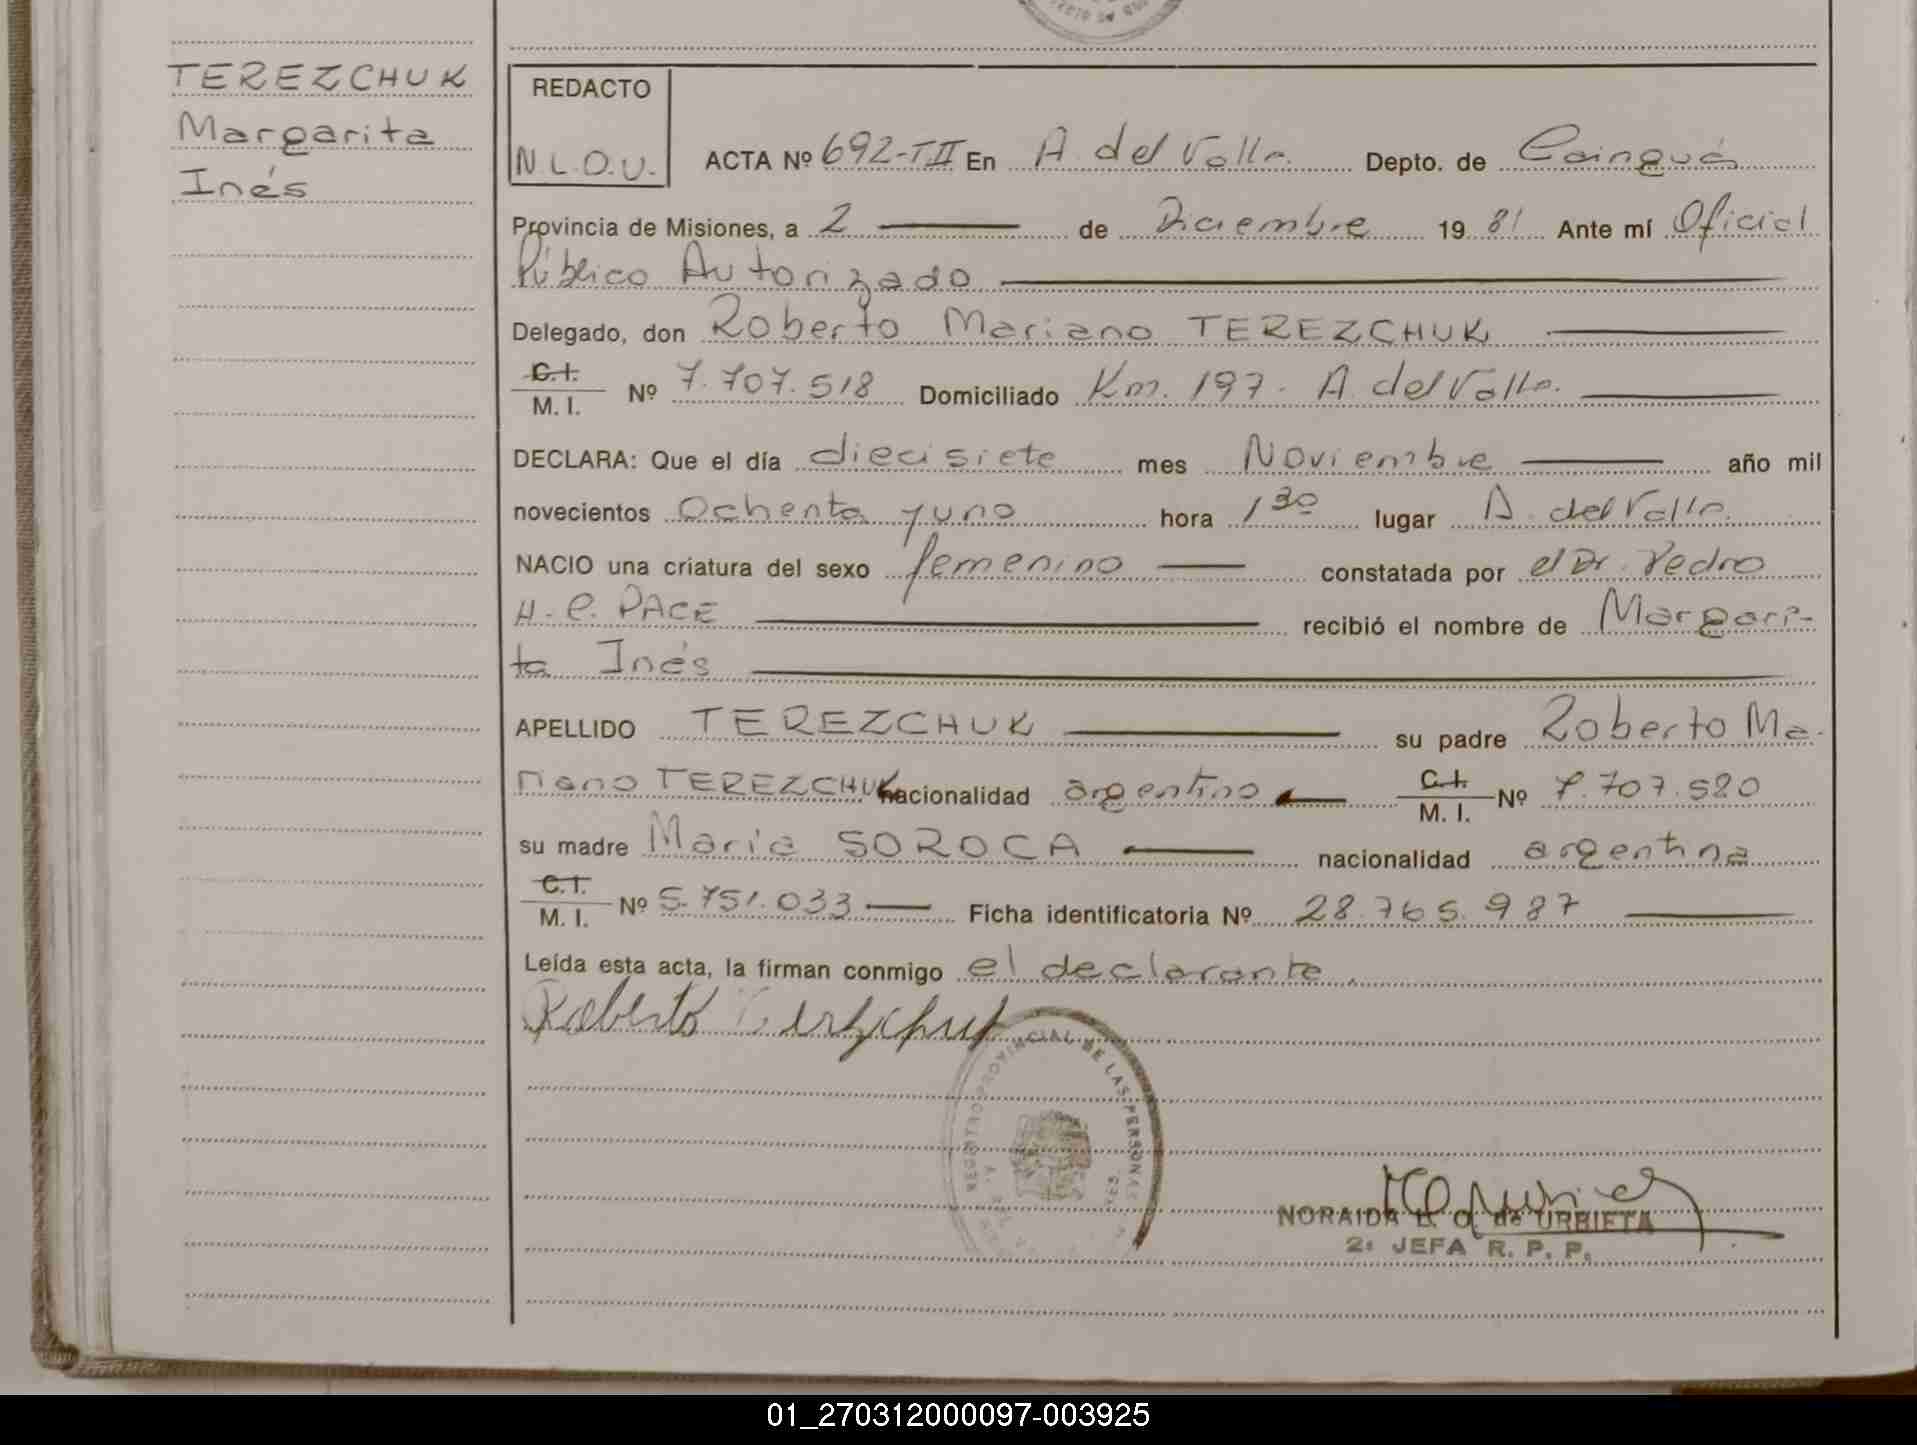 TEREZCHUK
Margarita
Inés
REDACTO
N.L.O.U.
ACTA Nº 692-TII En A. del Valle. Depto. de Cainguás
Provincia de Misiones, a 2 de Diciembre 19 81 Ante mí Oficial
Público Autorizado
Delegado, don Roberto Mariano TEREZCHUK
C.I. M. I. Nº 7.707.518 Domiciliado Km. 197. A. del Valle.
DECLARA: Que el día diecisiete mes Noviembre año mil
novecientos Ochenta y uno hora 1 30 lugar A. del Valle.
NACIO una criatura del sexo femenino constatada por el Dr. Pedro
H. C. PACE recibió el nombre de Margari-
ta Inés
APELLIDO TEREZCHUK su padre Roberto Ma-
riano TEREZCHUK nacionalidad argentino C.I. M. I. Nº 7.707.520
su madre María SOROCA nacionalidad argentina
C.I. M. I. Nº 5.751.033 Ficha identificatoria Nº 28.765.987
Leída esta acta, la firman conmigo el declarante.
Roberto Terezchuk
REGISTRO PROVINCIAL DE LAS PERSONAS
NORAIDA L. O. de URBIETA
2ª JEFA R. P. P.
01_270312000097-003925